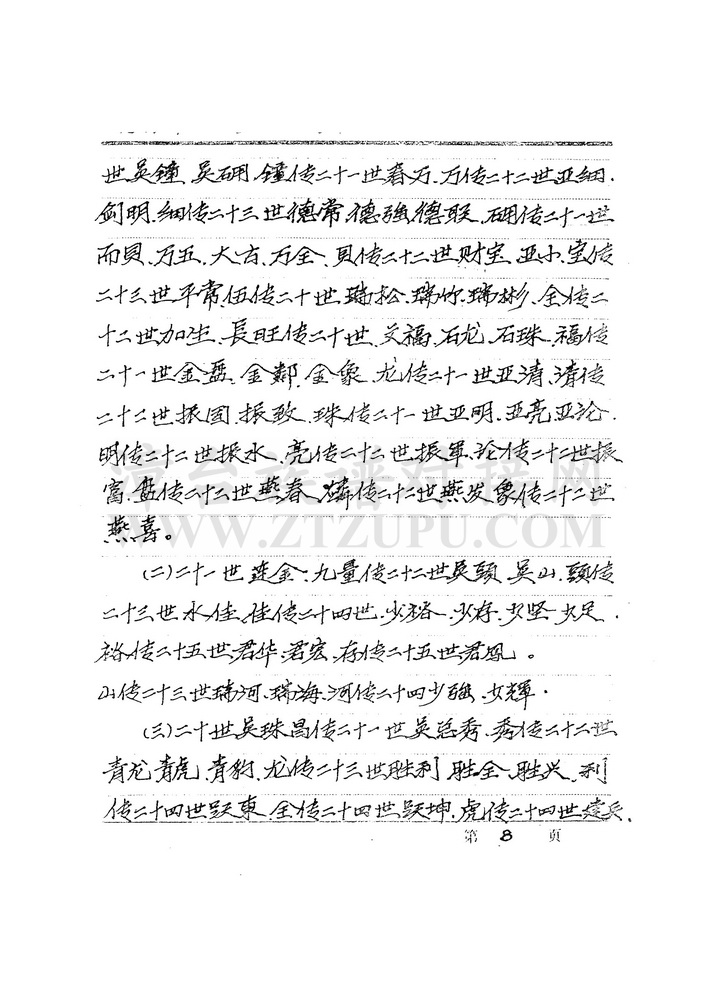 世吴鐘、吴硼、鐘传二十一世春万、万传二十二世亚細、
剑明、細传二十三世德常、德強、德联、硼传二十一世
而貝、万五、大吉、万全、貝传二十二世财宝、亚小、宝传
二十三世平常、伍传二十世瑞松、瑞竹、瑞彬、全传二
十二世加生、長旺传二十世、文福、石龙、石珠、福传
二十一世金盘、金鄰、金象、龙传二十一世亚清、清传
二十二世振国、振致、珠传二十一世亚明、亚亮、亚论、
明传二十二世振水、亮传二十二世振軍、论传二十二世振
富、盘传二十二世燕春、燐传二十二世燕发、象传二十二世
燕喜。
漳台族谱对接网
WWW.ZTZUPU.COM
(二)二十一世莲金、九量传二十二世吴頭、吴山、頭传
二十三世水佳、佳传二十四世、少裕、少存、少坚、少足、
裕传二十五世君华、君宏、存传二十五世君凤。
山传二十三世瑞河、瑞海、河传二十四少強、少輝、
(三)二十世吴珠昌传二十一世吴总秀、秀传二十二世
青龙、青虎、青豹、龙传二十三世胜利、胜全、胜兴、利
传二十四世跃東、全传二十四世跃坤、虎传二十四世建兵、
第 8 页